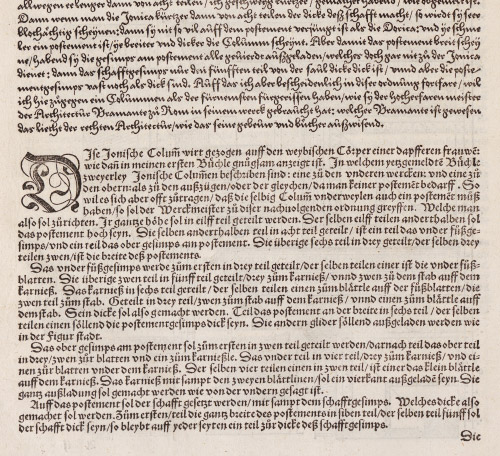 allwegen er lenger dann von acht teilen / ich geschwyg kürtzer / gemachet haben / wie obgemelt ist.
Dann wenn man die Jonica kürtzer dann von acht teilen der dicke deß schafft macht / so würdt sy seer
blochächtig scheynen: dann sy nit so vil auff dem postement verjüngt ist als die Dorica: vnd ye schmeler
ein postement ist / ye breiter vnd dicker die Columm scheynt. Aber damit das postement breit scheyne
/ habend sy die gesimps am postement alle gevierdt außgeladen / welcher doch gar nit zu der Jonica
dienet: dann das schafftgesimps nür den fünfften teil von der saül dicke dick ist / vnnd aber die postementgesimps
vast noch als dick sind. Auff das ich aber bescheidenlich in diser ordnung fortfare / wil
ich hie zügegen ein Columnen als der fürnemsten fürgerissen haben / wie sy der hocherfaren meister
der Architectur Bramante zü Rom in seinem werck gebraucht hat: welche Bramante ist gewesen
das liecht der rechten Architectur / wie das seine gebeüw vnd bücher außwisend.
DIse Jonische Colum̃ wirt gezogen auff den weybischen Cörper einer dapfferen frauwẽ:
wie dañ in meinen ersten Büchle gnügsam anzeigt ist. In welchem yetzgemeldtẽ Büchle
zweyerley Jonische Colum̃en beschriben sind: eine zü den vnderen wercken: vnd eine zü
den obern: als zü den außzügen / oder der gleychen / da man keiner postemẽt bedarff. So
wil es sich aber offt zütragen / daß die selbig Colum̃ vnderweylen auch ein postemẽt müß
haben / so sol der Werckmeister zü diser nachuolgenden ordnung greyffen. Welche man
also sol zürichten. Ir gantze höhe sol in eilff teil geteilt werden. Der selben eilff teilen anderthalben sol
das postement hoch seyn. Die selben anderthalben teil in acht teil geteilt / ist ein teil das vnder füßgesimps
/ vnd ein teil das ober gesimps am postement. Die übrige sechs teil in drey geteilt / der selben drey
teilen zwen / ist die breite deß postements.
Das vnder füßgesimps werde züm ersten in drey teil geteilt / der selben teilen einer ist die vnder füßblatten.
Die überige zwen teil in fünff teil geteilt / drey züm karnieß / vnnd zwen zü dem stab auff dem
karnieß. Das karnieß in sechs teil geteilt / der selben teilen einen züm blättle auff der füßblatten / die
zwen teil züm stab. Geteilt in drey teil / zwen züm stab auff dem karnieß / vnnd einen züm blättle auff
dem stab. Sein dicke sol also gemacht werden. Teil das postement an der breite in sechs teil / der selben
teilen einen söllend die postementgesimps dick seyn. Die andern glider söllend außgeladen werden wie
in der Figur stadt.
Das ober gesimps am postement sol züm ersten in zwen teil geteilt werden / darnach teil das ober teil
in drey / zwen zür blatten vnd ein züm karnießle. Das vnder teil in vier teil / drey züm karnieß / vnd einen
zür blatten vnder dem karnieß. Der selben vier teilen einen in zwen teil / ist einer das klein blättle
auff dem karnieß. Das karnieß mit sampt den zweyen blättlinen / sol ein vierkant außgeladẽ seyn. Die
gantz außladung sol gemacht werden wie von der vndern gesagt ist.
Auff das postement sol der schafft gesetzt werden / mit sampt dem schafftgesimps. Welches dicke also
gemacht sol werden. Züm ersten / teil die gantz breite des postements in siben teil / der selben teil fünff sol
der schafft dick seyn / so bleybt auff yeder seyten ein teil zür dicke deß schafftgesimps.
Die